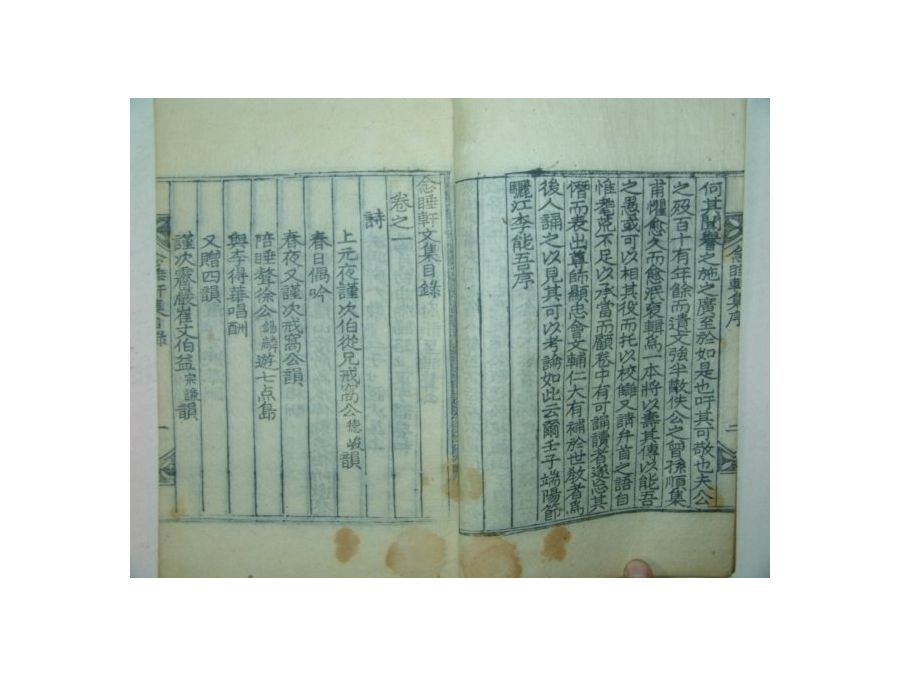 何其聞譽之施之廣至於如是也吁其可敬也夫公
之歿百十有年餘而遺文強半散佚公之曾孫順集
甫懼愈久而愈泯裒輯爲一本將以壽其傳以能吾
之愚或可以相其役而托以校讎又請弁首之語自
惟耄荒不足以承當而顧卷中有可誦讀者遂忘其
僭而表出尊師顯忠會文輔仁大有補於世敎者爲
後人誦之以見其可以考論如此云爾壬子端陽節
驪江李能吾序
念睡軒集序
二
念睡軒文集目錄
卷之一
詩
上元夜謹次伯從兄戒窩公德峻韻
春日偶吟
春夜又謹次戒窩公韻
陪睡聱徐公錫麟遊七点島
與李得華唱酬
又贈四韻
謹次巖崔丈伯益宗謙韻
念睡軒集目錄
一